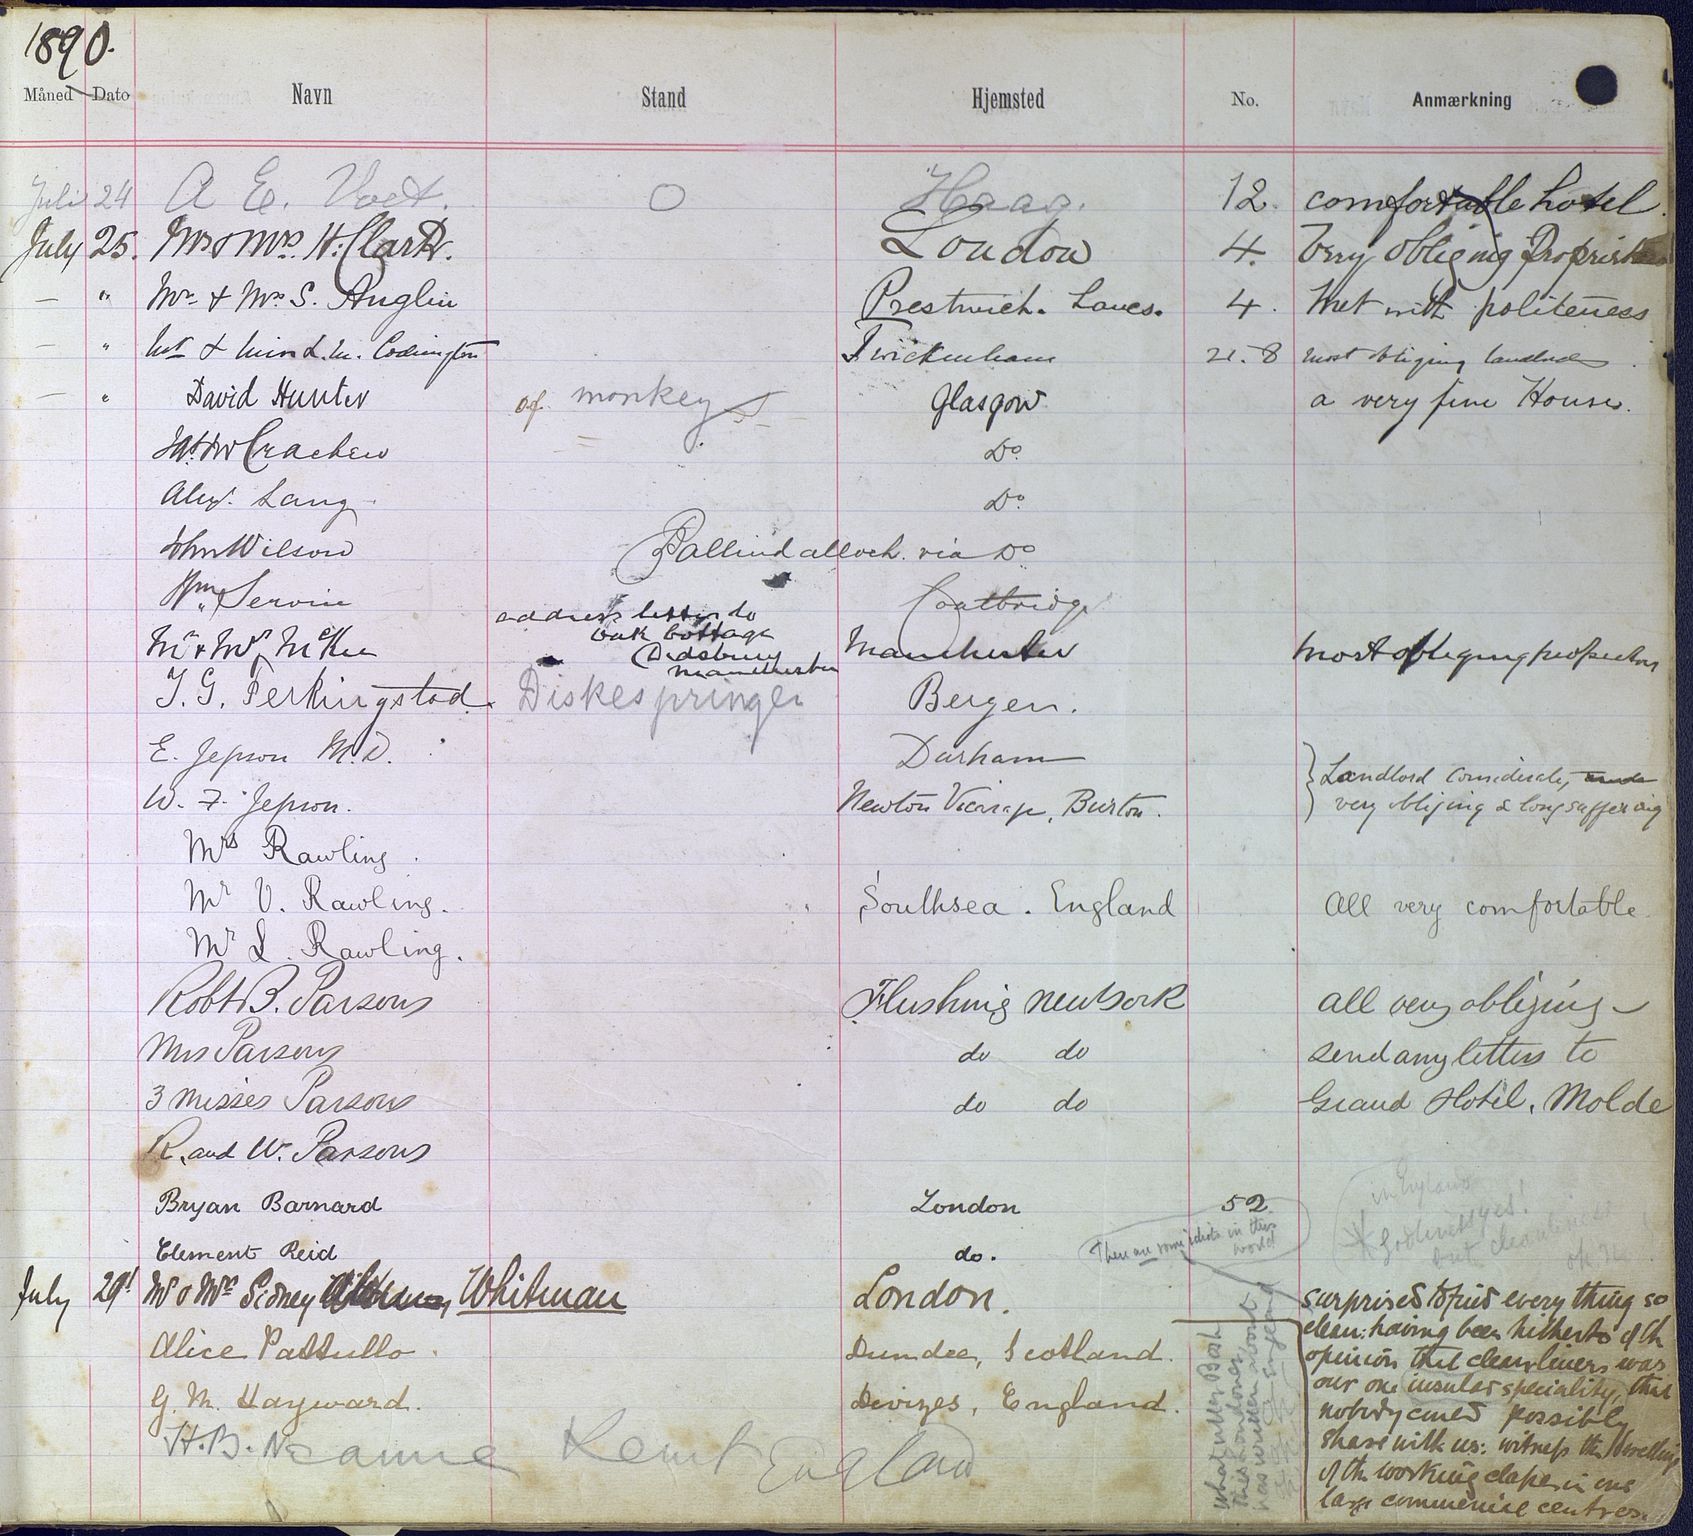 1890.
Måned Dato Navn Stand Hjemsted No. Anmærkning
Juli 24 A E. Voet. O Haag. 12. comfortable hotel.
July 25. Mr & Mrs. H. Clark. London 4. Very obliging Proprietor
— " Mr & Mrs S. Anglin Prestwich. Lancs. 4. Met with politeness
— " L. M. Codrington Twickenham 21. 8 most obliging landlord
— " David Hunter of monkey Glasgow a very fine House.
Cracken Do
Alexr. Lang Do
John Wilson Ballindalloch. via Do
Wm. Servin Coatbridge
address letter to
Oak Cottage
Mr & Mrs McKie Didsbury Manchester most obliging
Manchester
T. G. Ferkingstad. Diskespringer Bergen.
E. Jepson M.D. Durham
Landlord considerate,
W. F. Jepson. Newton Vicarage, Burton. very obliging & long suffering
Mrs Rawling.
Mr V. Rawling. Southsea. England All very comfortable
Mr L. Rawling.
Robt B. Parsons Flushing New York all very obliging —
Mrs Parsons do do send any letters to
3 Misses Parsons do do Grand Hotel. Molde
R. and W. Parsons
in England
Bryan Barnard London 52.
Godliness yes!
but cleanliness
There are some idiots in this
world
Clement Reid do.
July 29 Mr & Mrs Sidney Whitman London.
surprised to find every thing so
clean: having been hitherto of the
opinion that cleanliness was
our one insular speciality, that
nobody could possibly
share with us: witness the dwellings
of the working classes in our
large commercial centres.
Alice Pattullo. Dundee, Scotland.
G. M. Hayward. Devizes, England.
H. B. Kent England
What utter Bosh
this Londoner
has written about
England